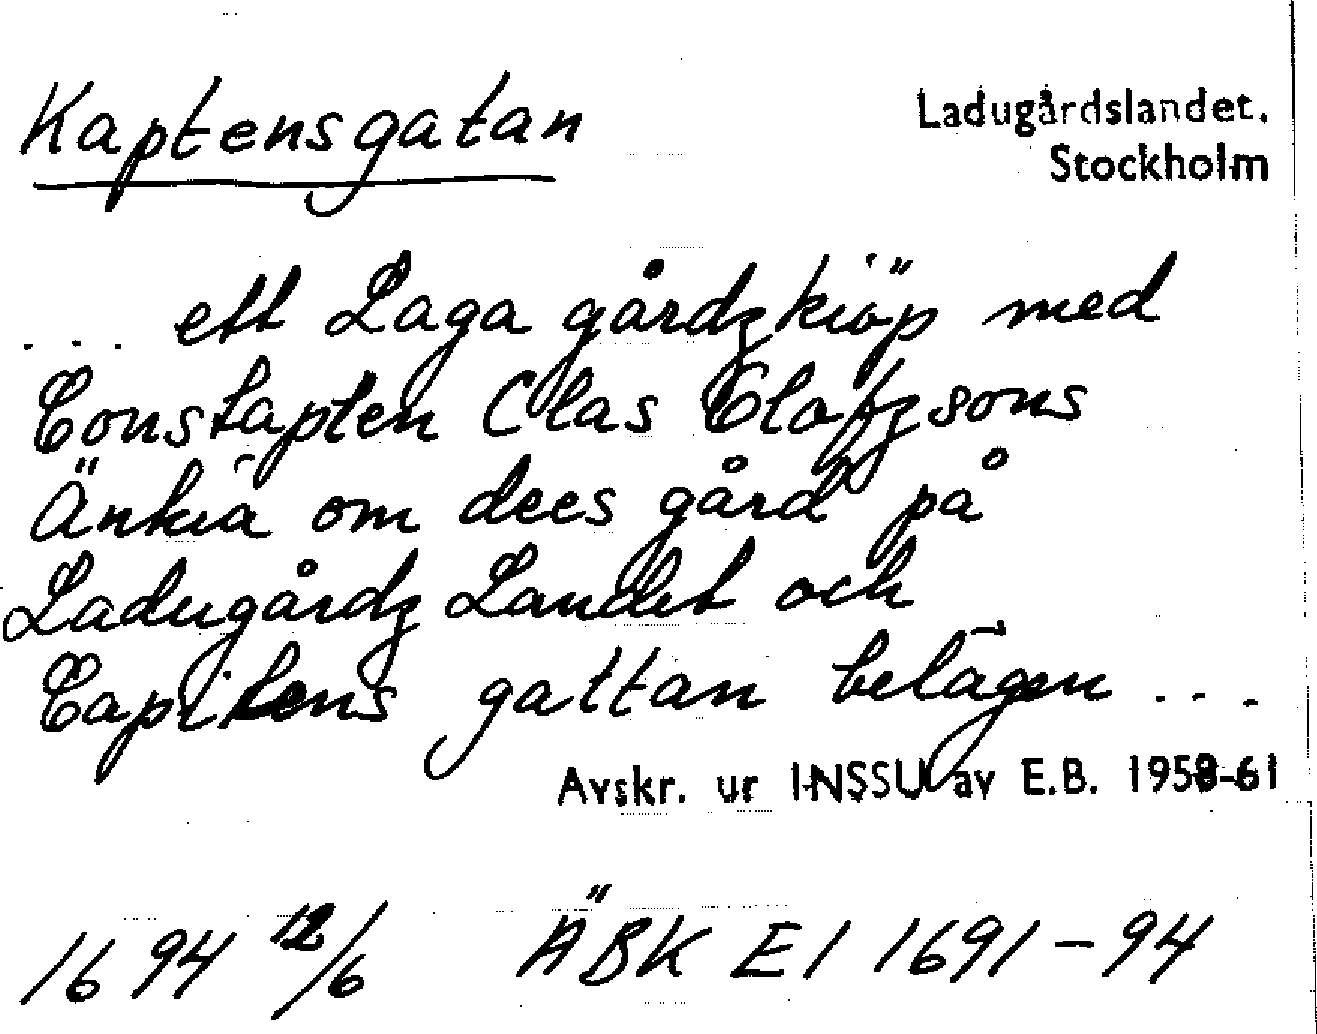 Kaptensgatan
Ladugårdslandet.
Stockholm
... ett Laga gårdzkiöp med
Constapten Clas Olofzsons
Änkia om dees gård på
Ladugårdz Landet och
Capitens gattan belägen ...
Avskr. ur INSSU av E.B. 1958-61
1694 12/6 ÄBK E1 1691-94